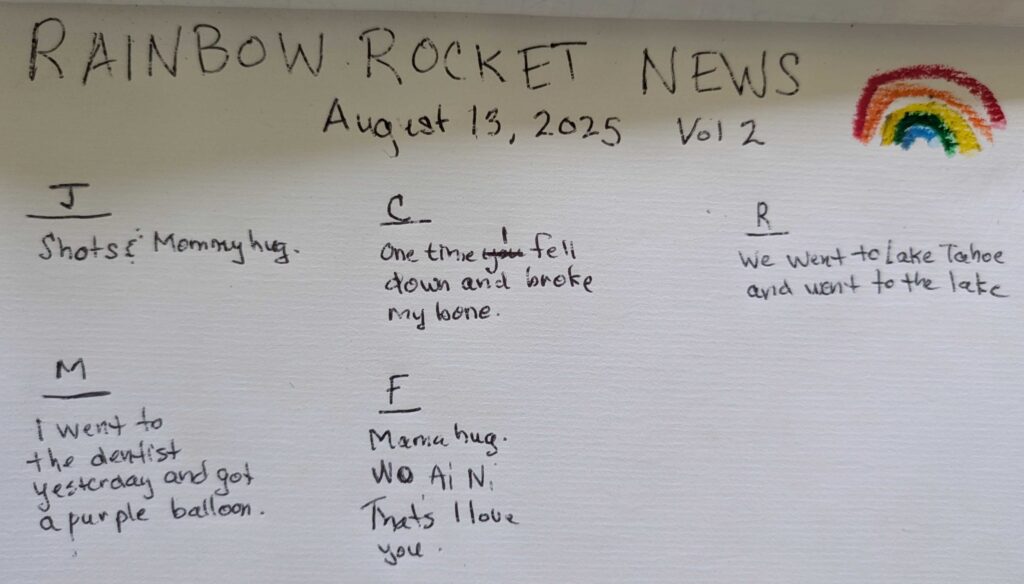 RAINBOW ROCKET NEWS
August 13, 2025 Vol 2
J
Shots & Mommy hug.
C
One time I fell
down and broke
my bone.
R
We went to Lake Tahoe
and went to the lake
M
I went to
the dentist
yesterday and got
a purple balloon.
F
Mama hug.
Wo Ai Ni
That's I love
you.